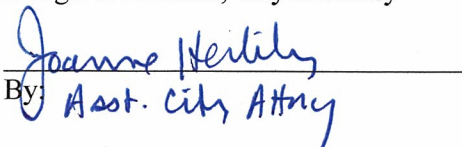 Joanne Herlihy
By:
Asst. City Attny